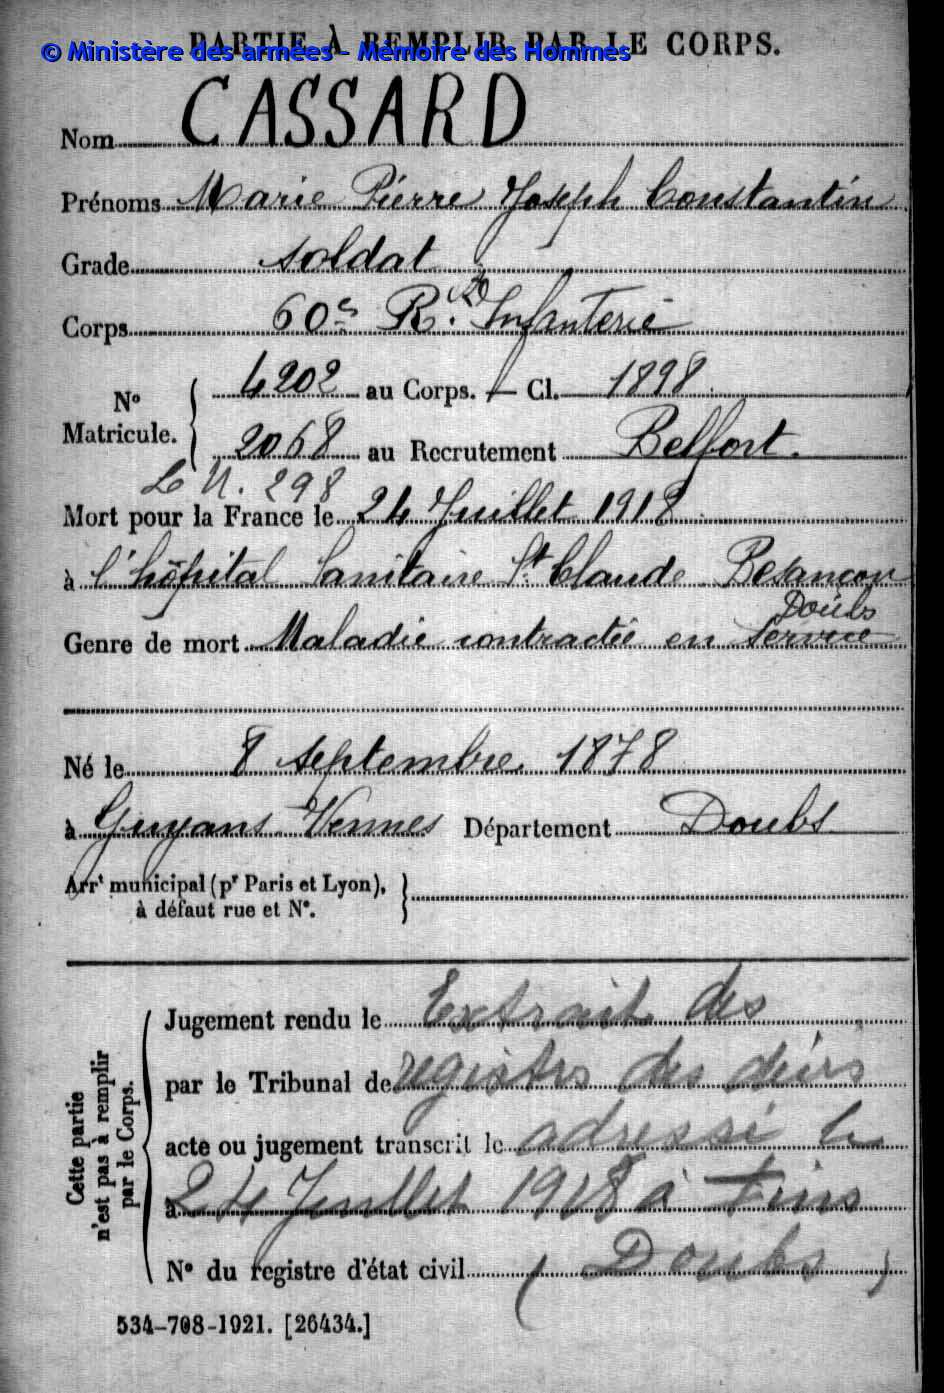 PARTIE À REMPLIR PAR LE CORPS.
© Ministère des armées - Mémoire des Hommes
Nom CASSARD
Prénoms Marie Pierre Joseph Constantin
Grade soldat
Corps 60e R. d'Infanterie
No Matricule. { 4202 au Corps. — Cl. 1898
2068 au Recrutement Belfort.
L N. 298
Mort pour la France le 24 Juillet 1918
à l'hôpital Sanitaire St Claude Besançon
Doubs
Genre de mort Maladie contractée en service
Né le 8 septembre 1878
à Guyans Vennes Département Doubs
Arrt municipal (pr Paris et Lyon),
à défaut rue et No.
Cette partie
n'est pas à remplir
par le Corps.
Jugement rendu le Extrait des
par le Tribunal de registres des décès
acte ou jugement transcrit le adressé le
à 24 Juillet 1918 à Fins
No du registre d'état civil (Doubs)
534-708-1921. [26434.]